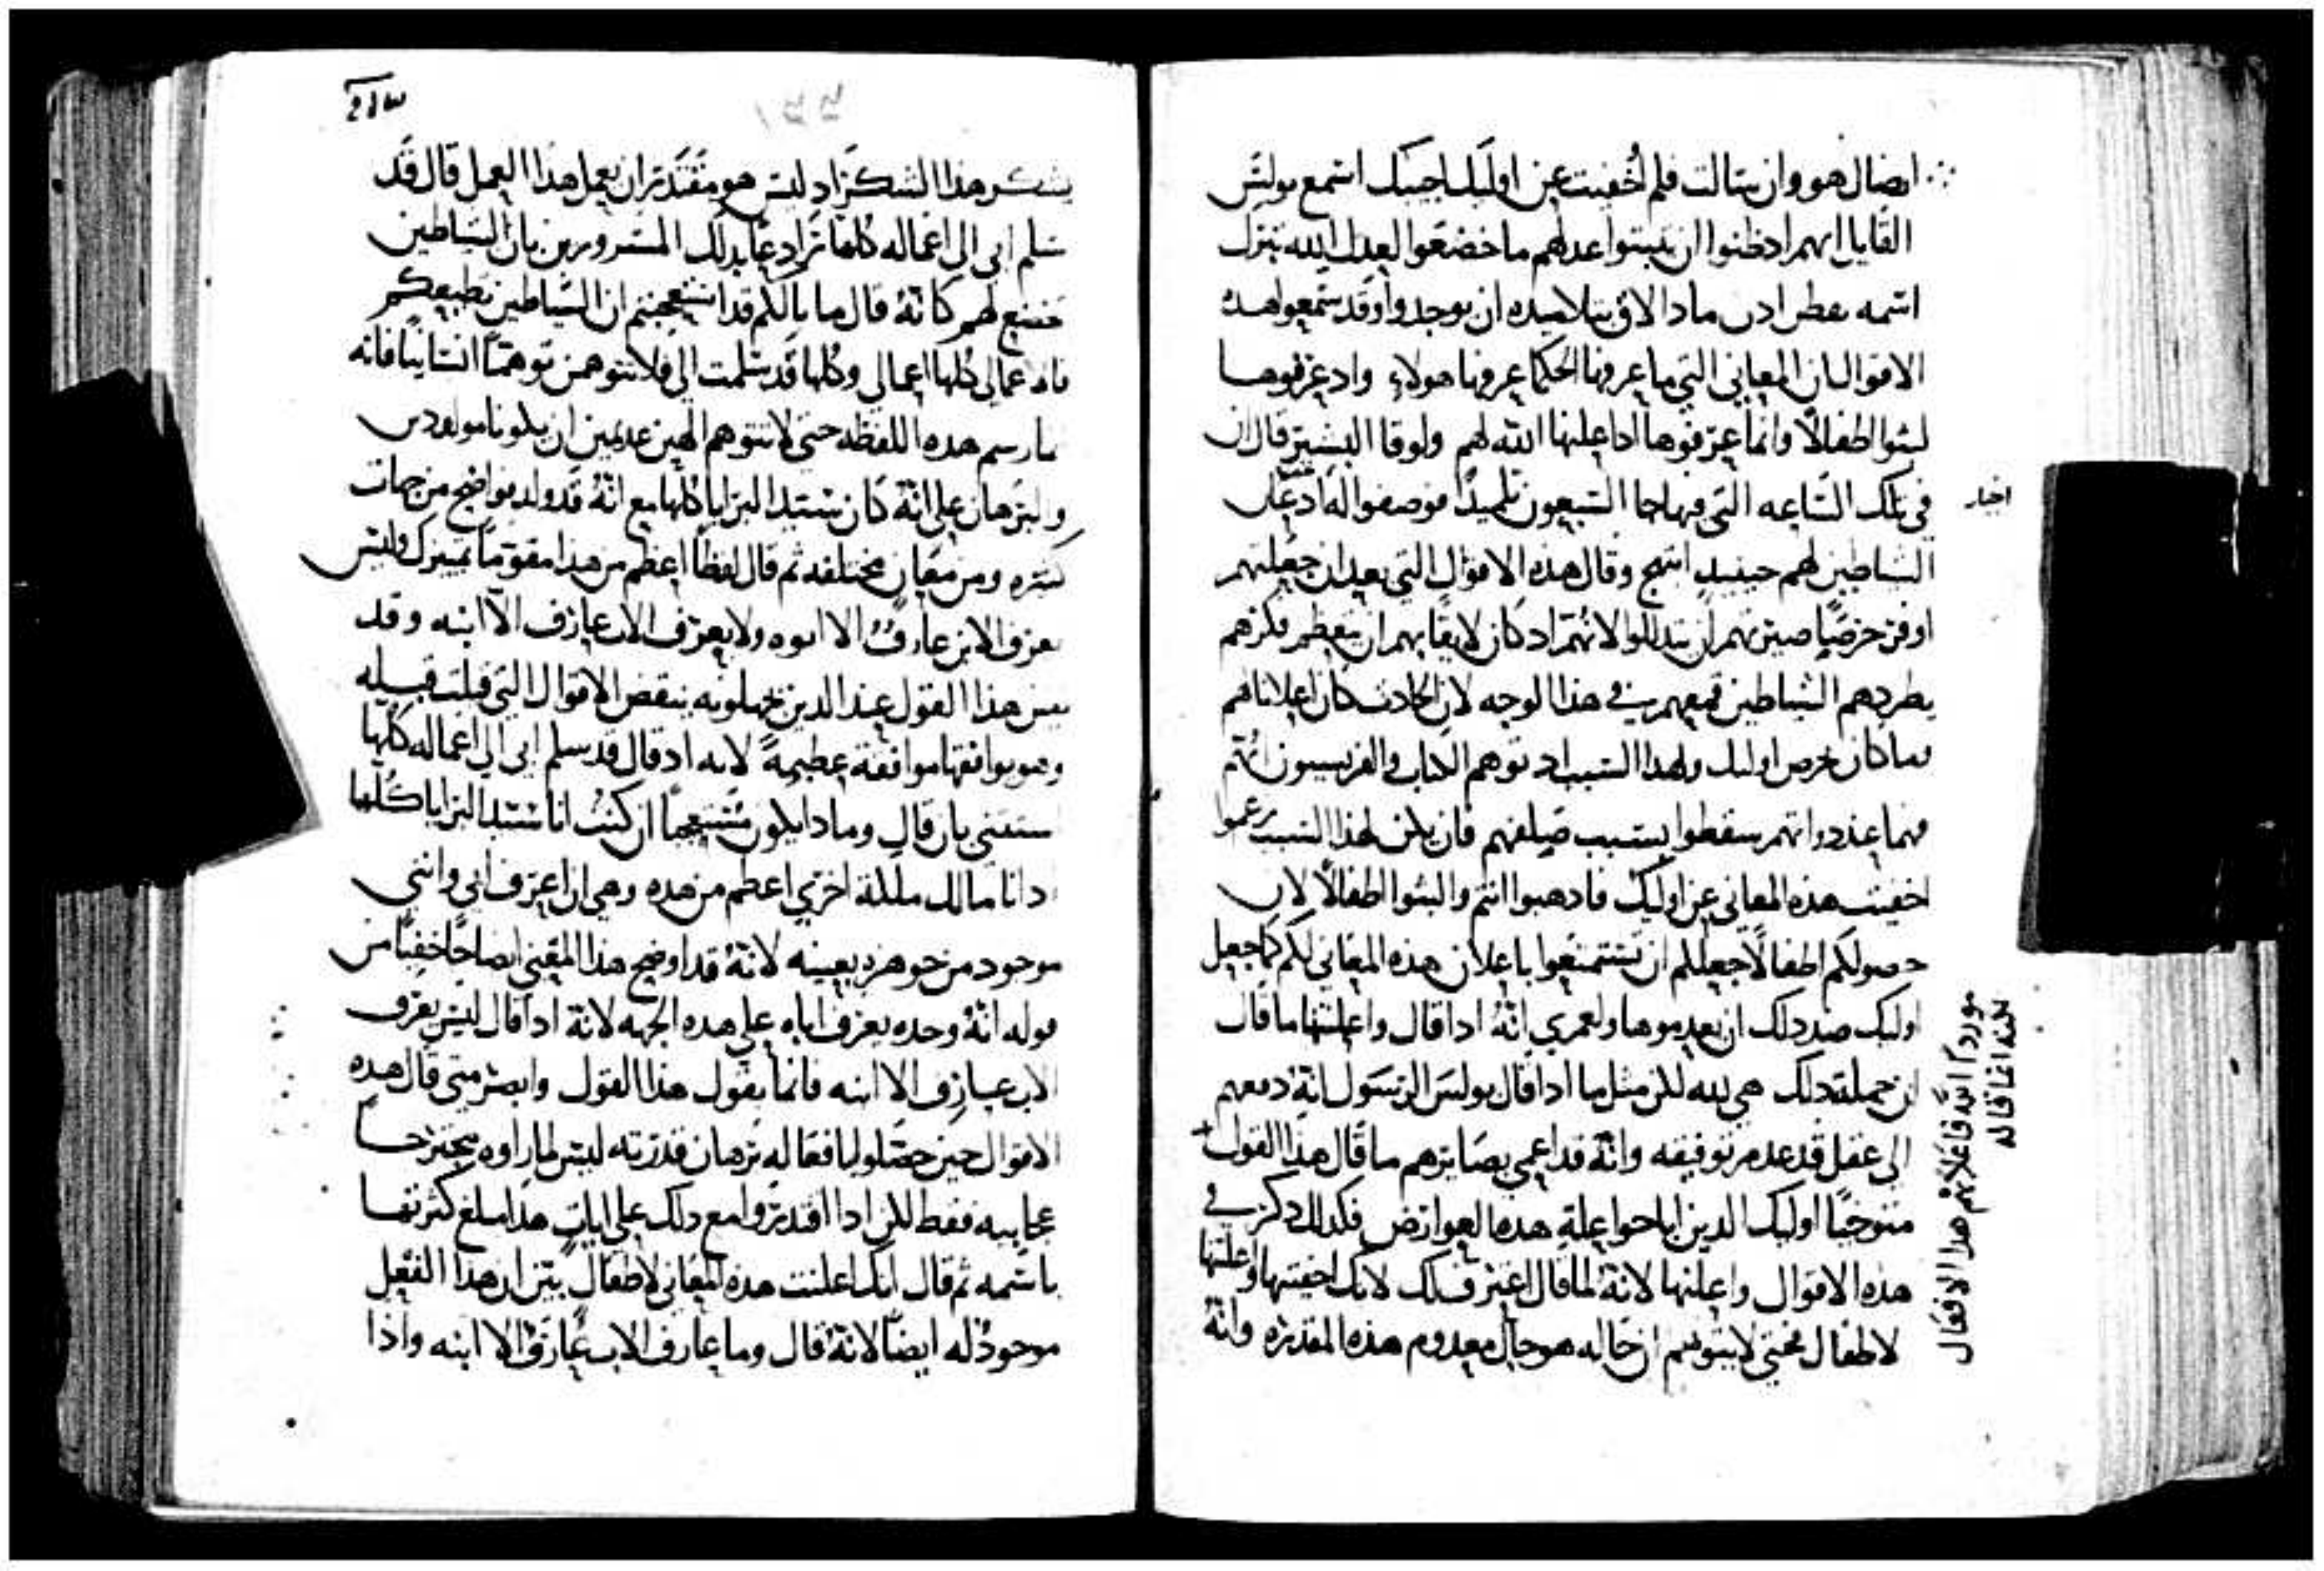 ايضا ل هو وان سالت فلم اخفيت عن اوليك اجيبك استمع بولس
القايل انهم اد ظنوا ان يثبتوا عدلهم ما خضعوا لعدل الله تنزل
اسمه ماذا لاق بتلاميده ان يوجدوا وقد سمعوا هده
الاقوال ان المعاني التي ما عرفها الحكما عرفها هولاء واد عرفوها
لبثوا اطفالًا وانما عرفوها اذ اعلنها الله لهم ولوقا البشير قال ان
في تلك الساعه التي فيها جا السبعون تلميدًا فوصفوا له ادعان
اخبار
الشياطين لهم حينيدٍ ابتهج وقال هده الاقوال التي بعد ان جعلتهم
اوفر حرصًا صيرتهم ان يتدللوا لانهم اد كان لايقًا بهم ان يتعظم فكرهم
بطردهم الشياطين قمعهم في هذا الوجه لان الحادث كان اعلانًا لهم
وما كان حرص اوليك ولهدا السبب اد توهم الكتاب والفريسيون انهم
فهما عند دواتهم سقطوا بسبب صلفهم فان يكن لهذا السبب زعموا
اخفيت هذه المعاني عن اوليك فادهبوا انتم والبثوا اطفالًا لان
حصولكم اطفالًا جعل لكم ان تستمتعوا باعلان هده المعاني لكم كما جعل
اوليك ضد دلك ان يعدموها ولعمري انهُ ادا قال واعلنتها ما قال
ان جملة دلك هي لله لكن مثل ما ادا قال بولس الرسول انهُ دفعهم
الى عقل قد عدم توفيقه وانهُ قد اعمى بصايرهم ما قال هذا القول
متوخيًا اوليك الدين اباحوا علة هده العوارض فكدلك دكر في
هذه الاقوال واعلنها لانهُ لما قال اعترف لك لانك اخفيتها واعلنتها
لاطفال فحتى لا يتوهم ان حاله هو حال معدوم هذه المقدره وانهُ
مورد الله فاعلا بهم هدا الافعال
لكنه انما قاله
٢١٣
يشكر هذا الشكر اد ليس هو مقتدر ان يعمل هذا العمل قال قد
سلم ابي الي اعماله كلها بدلك المسرورين بان الشياطين
تخضع لهم كانهُ قال ما بالكم قد استعجبتم ان الشياطين تطيعكم
فاعمالي كلها اعمالي وكلها قد سلمت الي فلا تتوهمن توهمًا انسانيًا فانه
ما رسم هده اللفظه حتى لا نتوهم الهين عديمين ان يكونا مولودين
والبرهان على انهُ كان سيد البرايا كلها مع انهُ قد ولد بواضح من جهات
كثيره ومن معانٍ مختلفه ثم قال لفظًا اعظم من هذا مقومًا تمييزك وليس
يعرف الابن عارفٌ الا ابوه ولا يعرف الاب عارف الا ابنه وقد
يتبين هذا القول عند الدين يجهلونه ينقض الاقوال التي قيلت قبله
وهو يوافقها موافقة عظيمةً لانه اد قال قد سلم ابي الي اعماله كلها
استثنى بان قال وماذا يكون مستعجبًا ان كنتُ انا سيد البرايا كلها
وانا مالك ملكة اخرى اعظم من هده وهي ان اعرف ابي وانني
موجود من جوهره بعينه لانهُ قد اوضح هذا المعنى ايضاحًا خفيًا من
قوله انهُ وحده يعرف اباه على هده الجهه لانهُ ادا قال ليس يعرف
الاب عارف الا ابنه فانما يقول هذا القول وابصر متى قال هده
الاقوال حين حصلوا بافعاله برهان قدرته ليس لما راوه يجترح
عجايبه فقط لكن ادا اقتدروا مع دلك على اياتٍ هدا مبلغ كثرتها
باسمه ثم قال انك اعلنت هده المعاني لاطفال بين ان هدا الفعل
موجودٌ له ايضًا لانهُ قال وما عارف الاب عارفٌ الا ابنه واذا